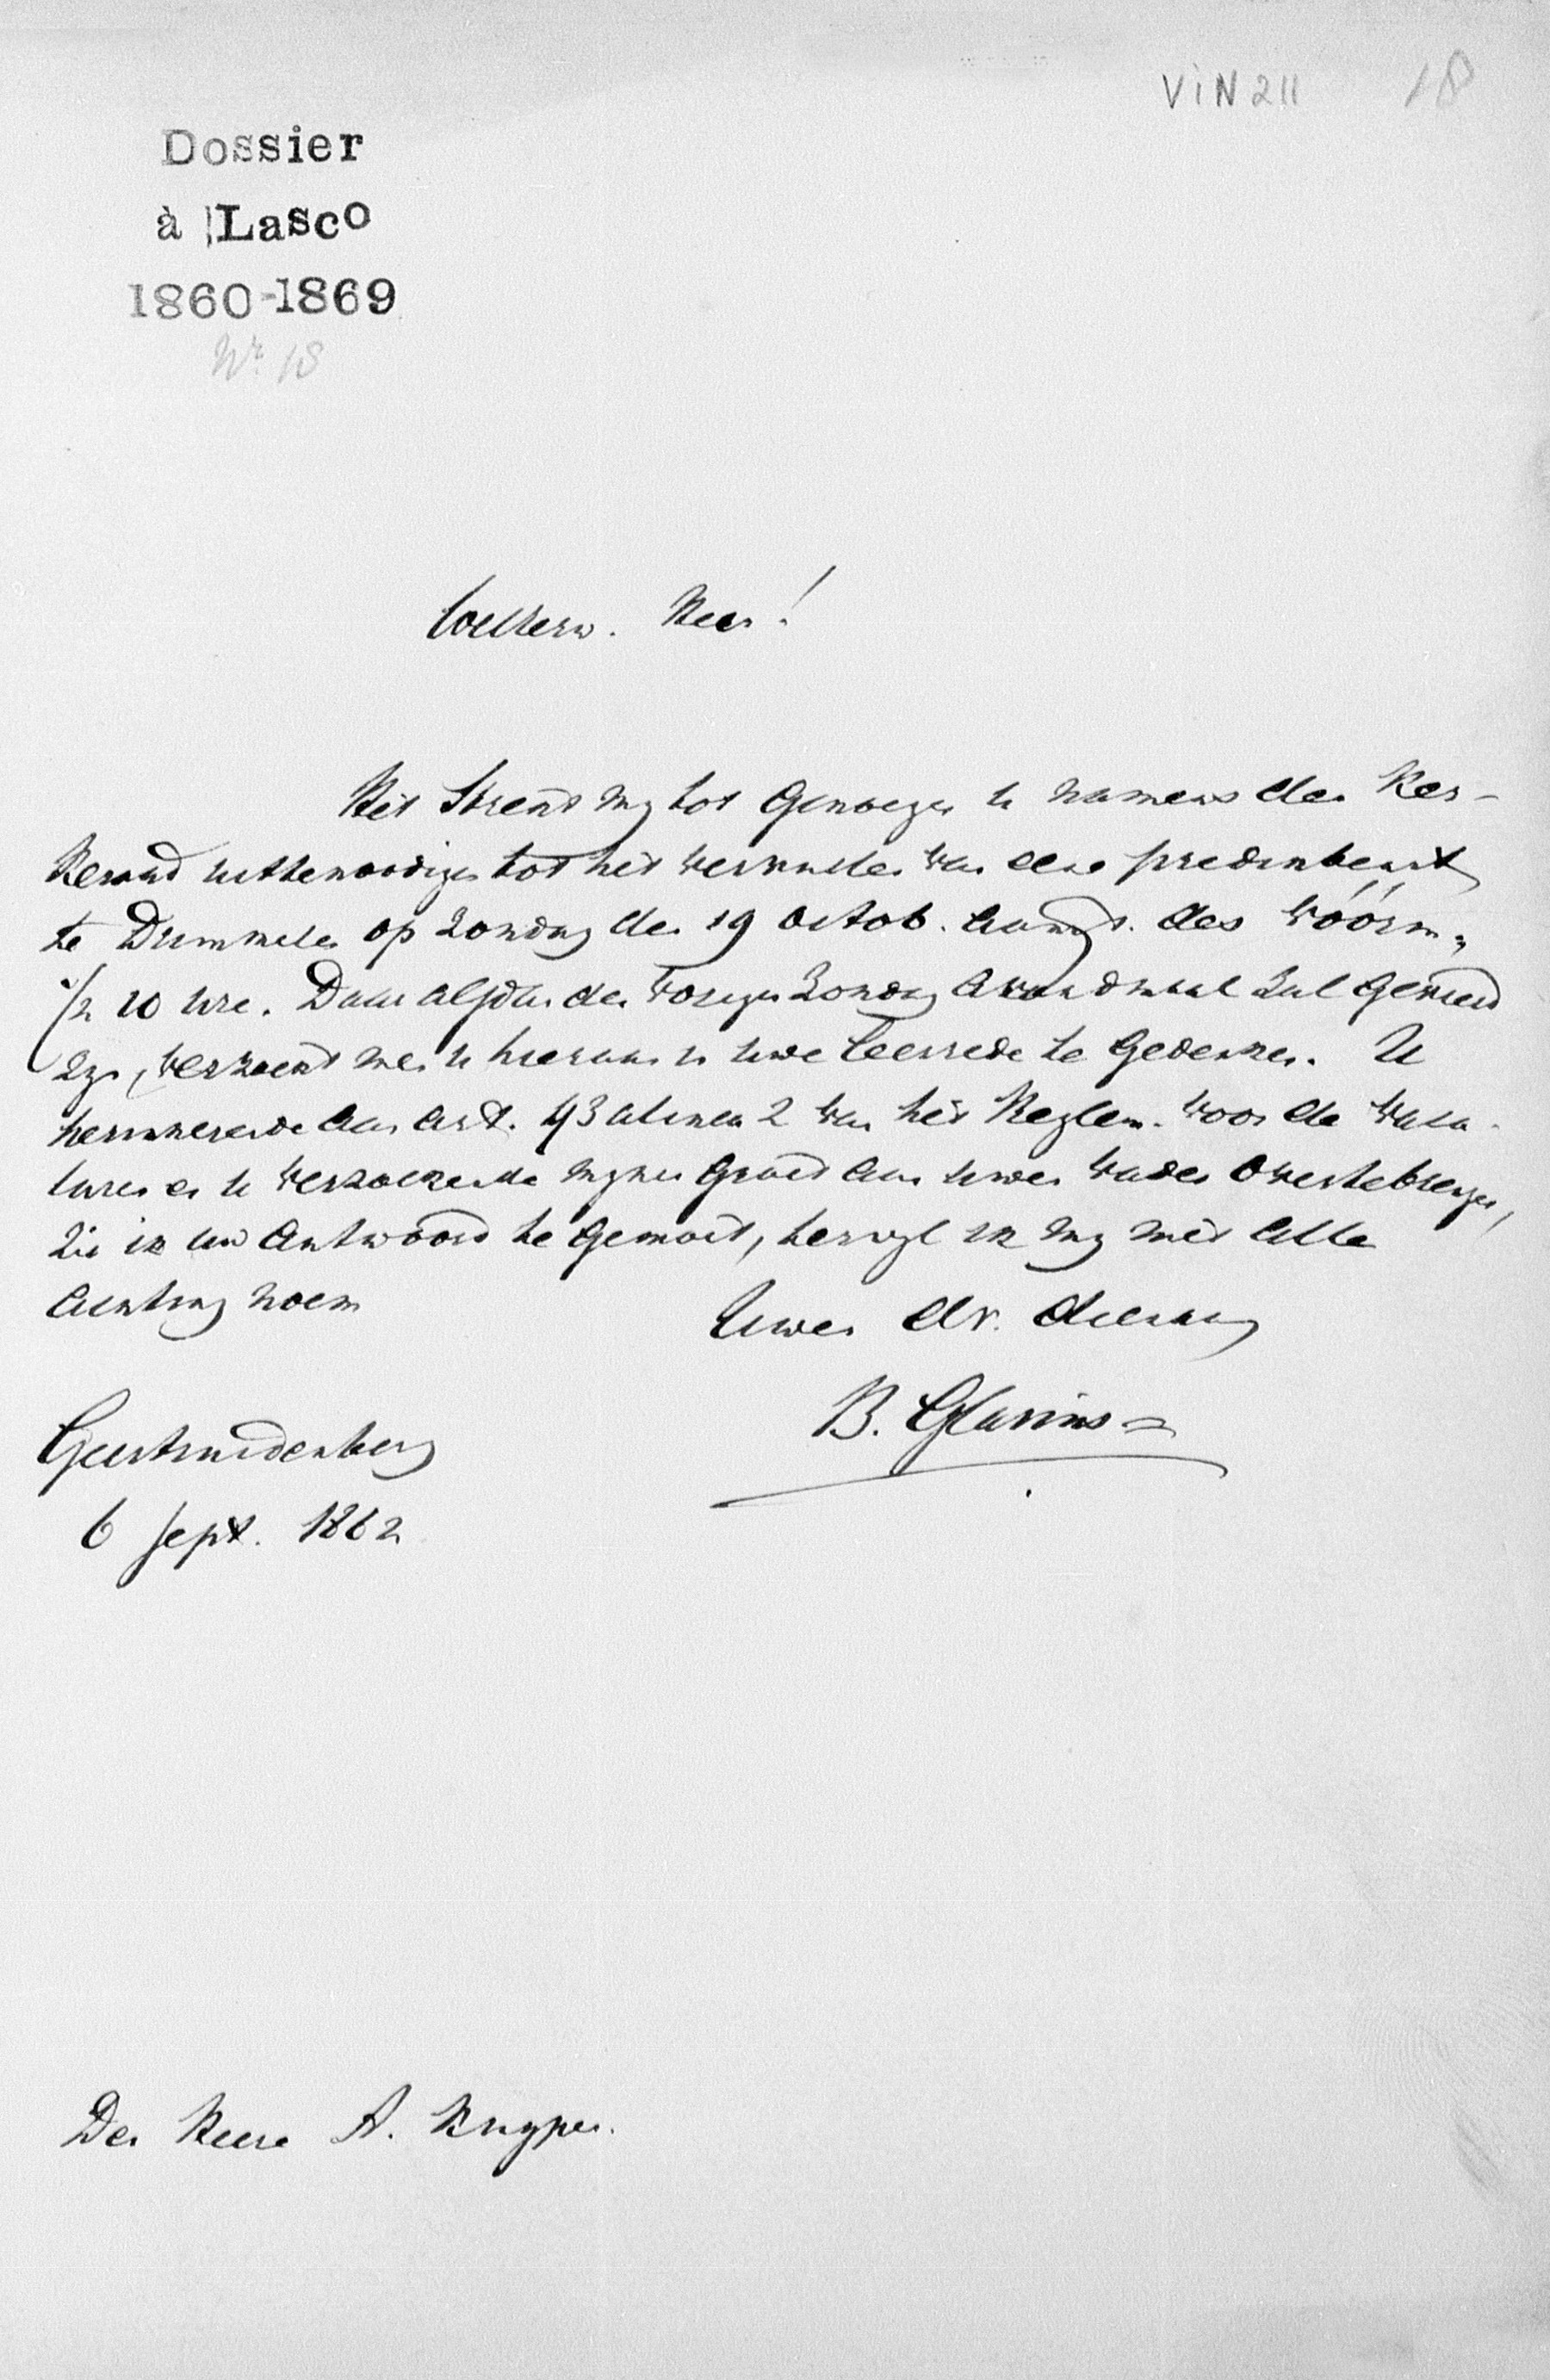 VIN 211 18
Dossier
à Lasco
1860-1869
Nr. 18
Weleerw. Heer!
Het strekt mij tot genoegen u namens den Ker-
keraad uittenoodigen tot het vervullen van eene predikbeurt
te Drimmelen op Zondag den 19 Octob. aanst. des vóórm.
1/2 10 ure. Daar alsdan den vorigen Zondag Avondmaal zal gevierd
zijn, verzoekt men u hieraan in uwe leerrede te gedenken. U
herinnerende aan art. 43 alinea 2 van het Reglem. voor de Vaca-
turen en u verzoekende mijnen groet aan uwen vader overtebrengen,
zie ik uw antwoord te gemoet, terwijl ik mij met alle
achting noem
Uwen dv. dienaar
B. Glasius
Geertruidenberg
6 Sept. 1862
Den Heere A. Kuyper.